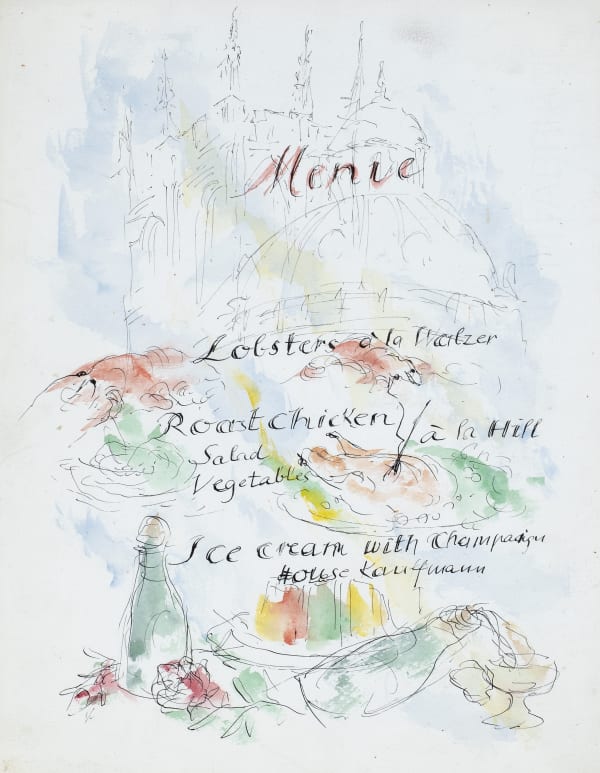 Menue
Lobsters à la Waelzer
Roast Chicken à la Hill
Salad
Vegetables
Ice cream with Champagn
House Kauffmann